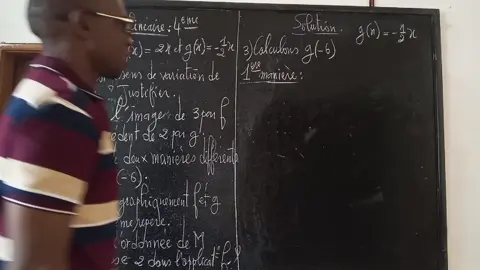 linéaire : 4ème
(x) = 2x et g(x) = -1/2 x
sens de variation de
? Justifier.
l'images de 3 par f
édent de 2 par g.
deux manières différents
(-6).
graphiquement f et g
me repère.
l'ordonnée de M
2 dans l'applicat°
Solution.
g(x) = -1/2 x
3) Calculons g(-6)
1ère manière :